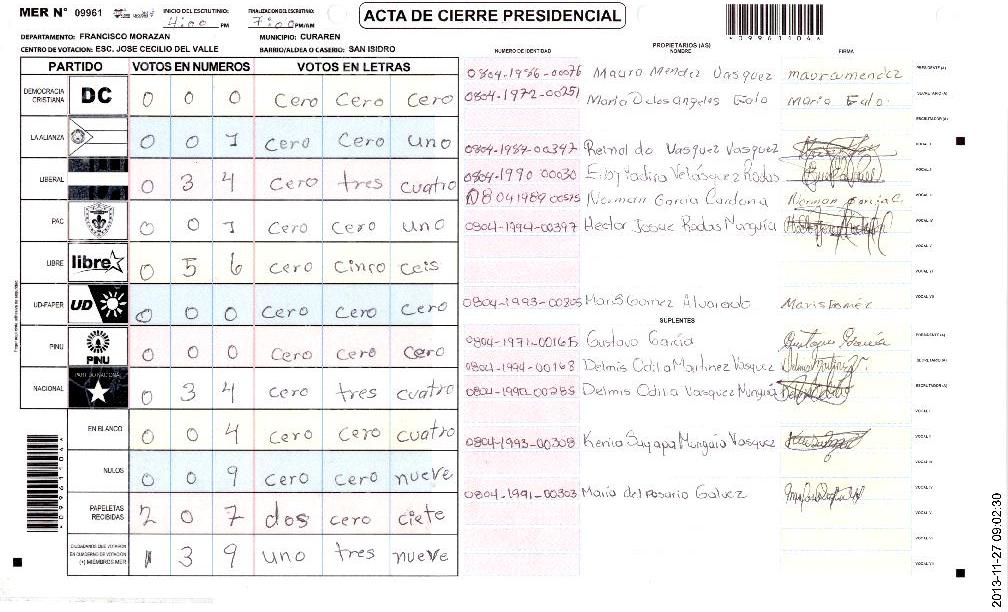 MER N° 09961 INICIO DEL ESCRUTINIO: 4:00 PM FINALIZACION DEL ESCRUTINIO: 7:00 PM/AM
ACTA DE CIERRE PRESIDENCIAL
DEPARTAMENTO: FRANCISCO MORAZAN MUNICIPIO: CURAREN
CENTRO DE VOTACION: ESC. JOSE CECILIO DEL VALLE BARRIO/ALDEA O CASERIO: SAN ISIDRO
PARTIDO VOTOS EN NUMEROS VOTOS EN LETRAS
DEMOCRACIA CRISTIANA DC 0 0 0 Cero Cero Cero
LA ALIANZA 0 0 1 cero Cero uno
LIBERAL 0 3 4 cero tres cuatro
PAC 0 0 1 Cero Cero uno
LIBRE libre 0 5 6 cero cinco ceis
UD-FAPER UD 0 0 0 cero Cero Cero
PINU PINU 0 0 0 Cero Cero Cero
NACIONAL PARTIDO NACIONAL 0 3 4 cero tres cuatro
EN BLANCO 0 0 4 cero cero cuatro
NULOS 0 0 9 cero cero nueve
PAPELETAS RECIBIDAS 2 0 7 dos cero ciete
CIUDADANOS QUE VOTARON EN CUADERNO DE VOTACION (+) MIEMBROS MER 1 3 9 uno tres nueve
PROPIETARIOS (AS)
NUMERO DE IDENTIDAD NOMBRE FIRMA
0804-1986-00076 Mauro Mendez Vasquez mauro mendez PRESIDENTE (A)
0804-1972-00251 Maria Delosangeles Galo Maria Galo SECRETARIO (A)
ESCRUTADOR (A)
0804-1984-00347 Reinaldo Vasquez Vasquez VOCAL I
0804-1990 00030 Velásquez Rodas VOCAL II
0804 1989 00575 Norman Garcia Cardona Norman Garcia C. VOCAL III
0804-1994-00397 Hector Josue Rodas Munguía VOCAL IV
VOCAL V
VOCAL VI
0804-1993-00305 Maris Gomez Alvarado Maris Gomez VOCAL VII
SUPLENTES
0804-1971-00165 Gustavo García Gustavo García PRESIDENTE (A)
0804-1994-00168 Delmis Odila Martinez Vasquez SECRETARIO (A)
0804-1990-00285 Delmis Odila Vasquez Munguia ESCRUTADOR (A)
VOCAL I
0804-1993-00308 Kenia Suyapa Munguia Vasquez VOCAL II
VOCAL III
0804-1991-00303 Maria del Rosario Galvez VOCAL IV
VOCAL V
VOCAL VI
VOCAL VII
2013-11-27 09:02:30